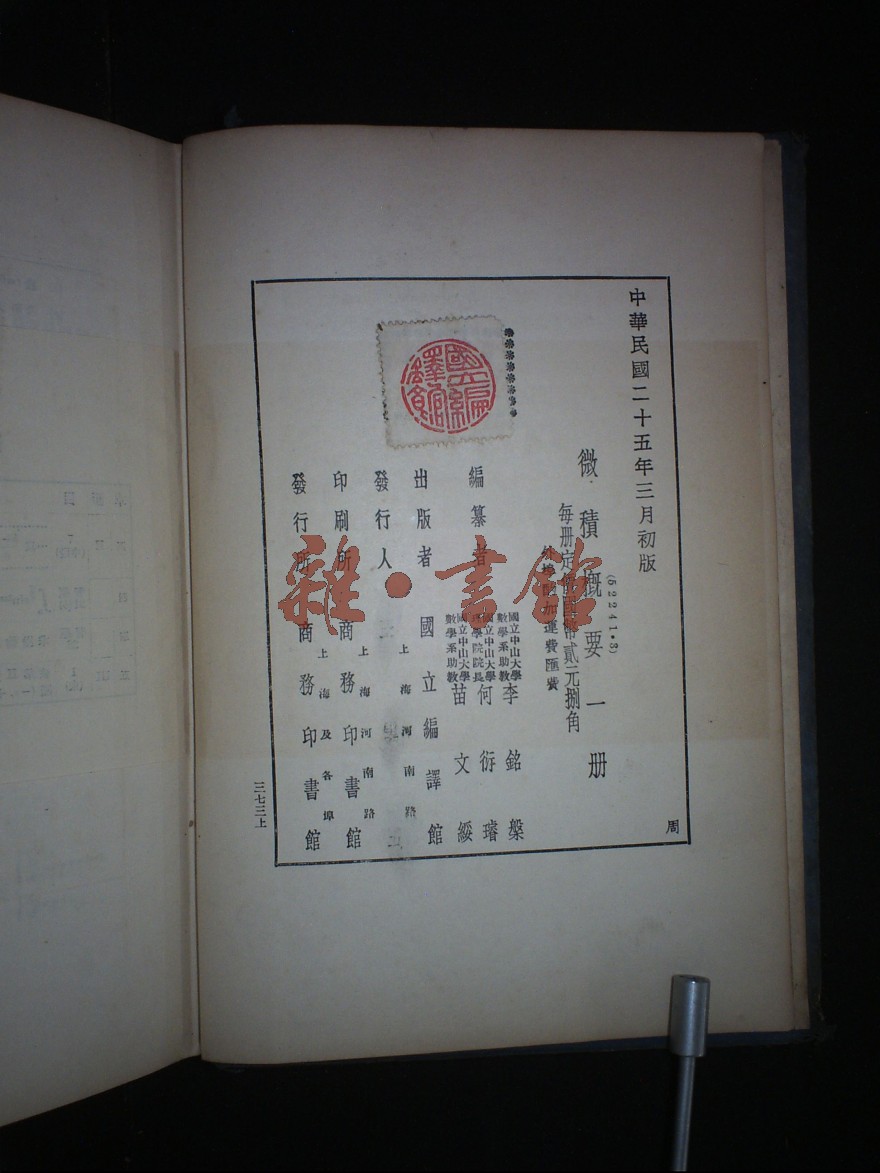 中華民國二十五年三月初版
(52241·3)
微積概要一册
每册定價國幣貳元捌角
外埠酌加運費匯費
編纂者
國立中山大學數學系助教 李銘槃
國立中山大學理學院院長 何衍璿
國立中山大學數學系助教 苗文綏
出版者 國立編譯館
發行人
上海河南路
印刷所 商務印書館
上海河南路
發行所 商務印書館
上海及各埠
國立編譯館
周
三七三上
雜·書館